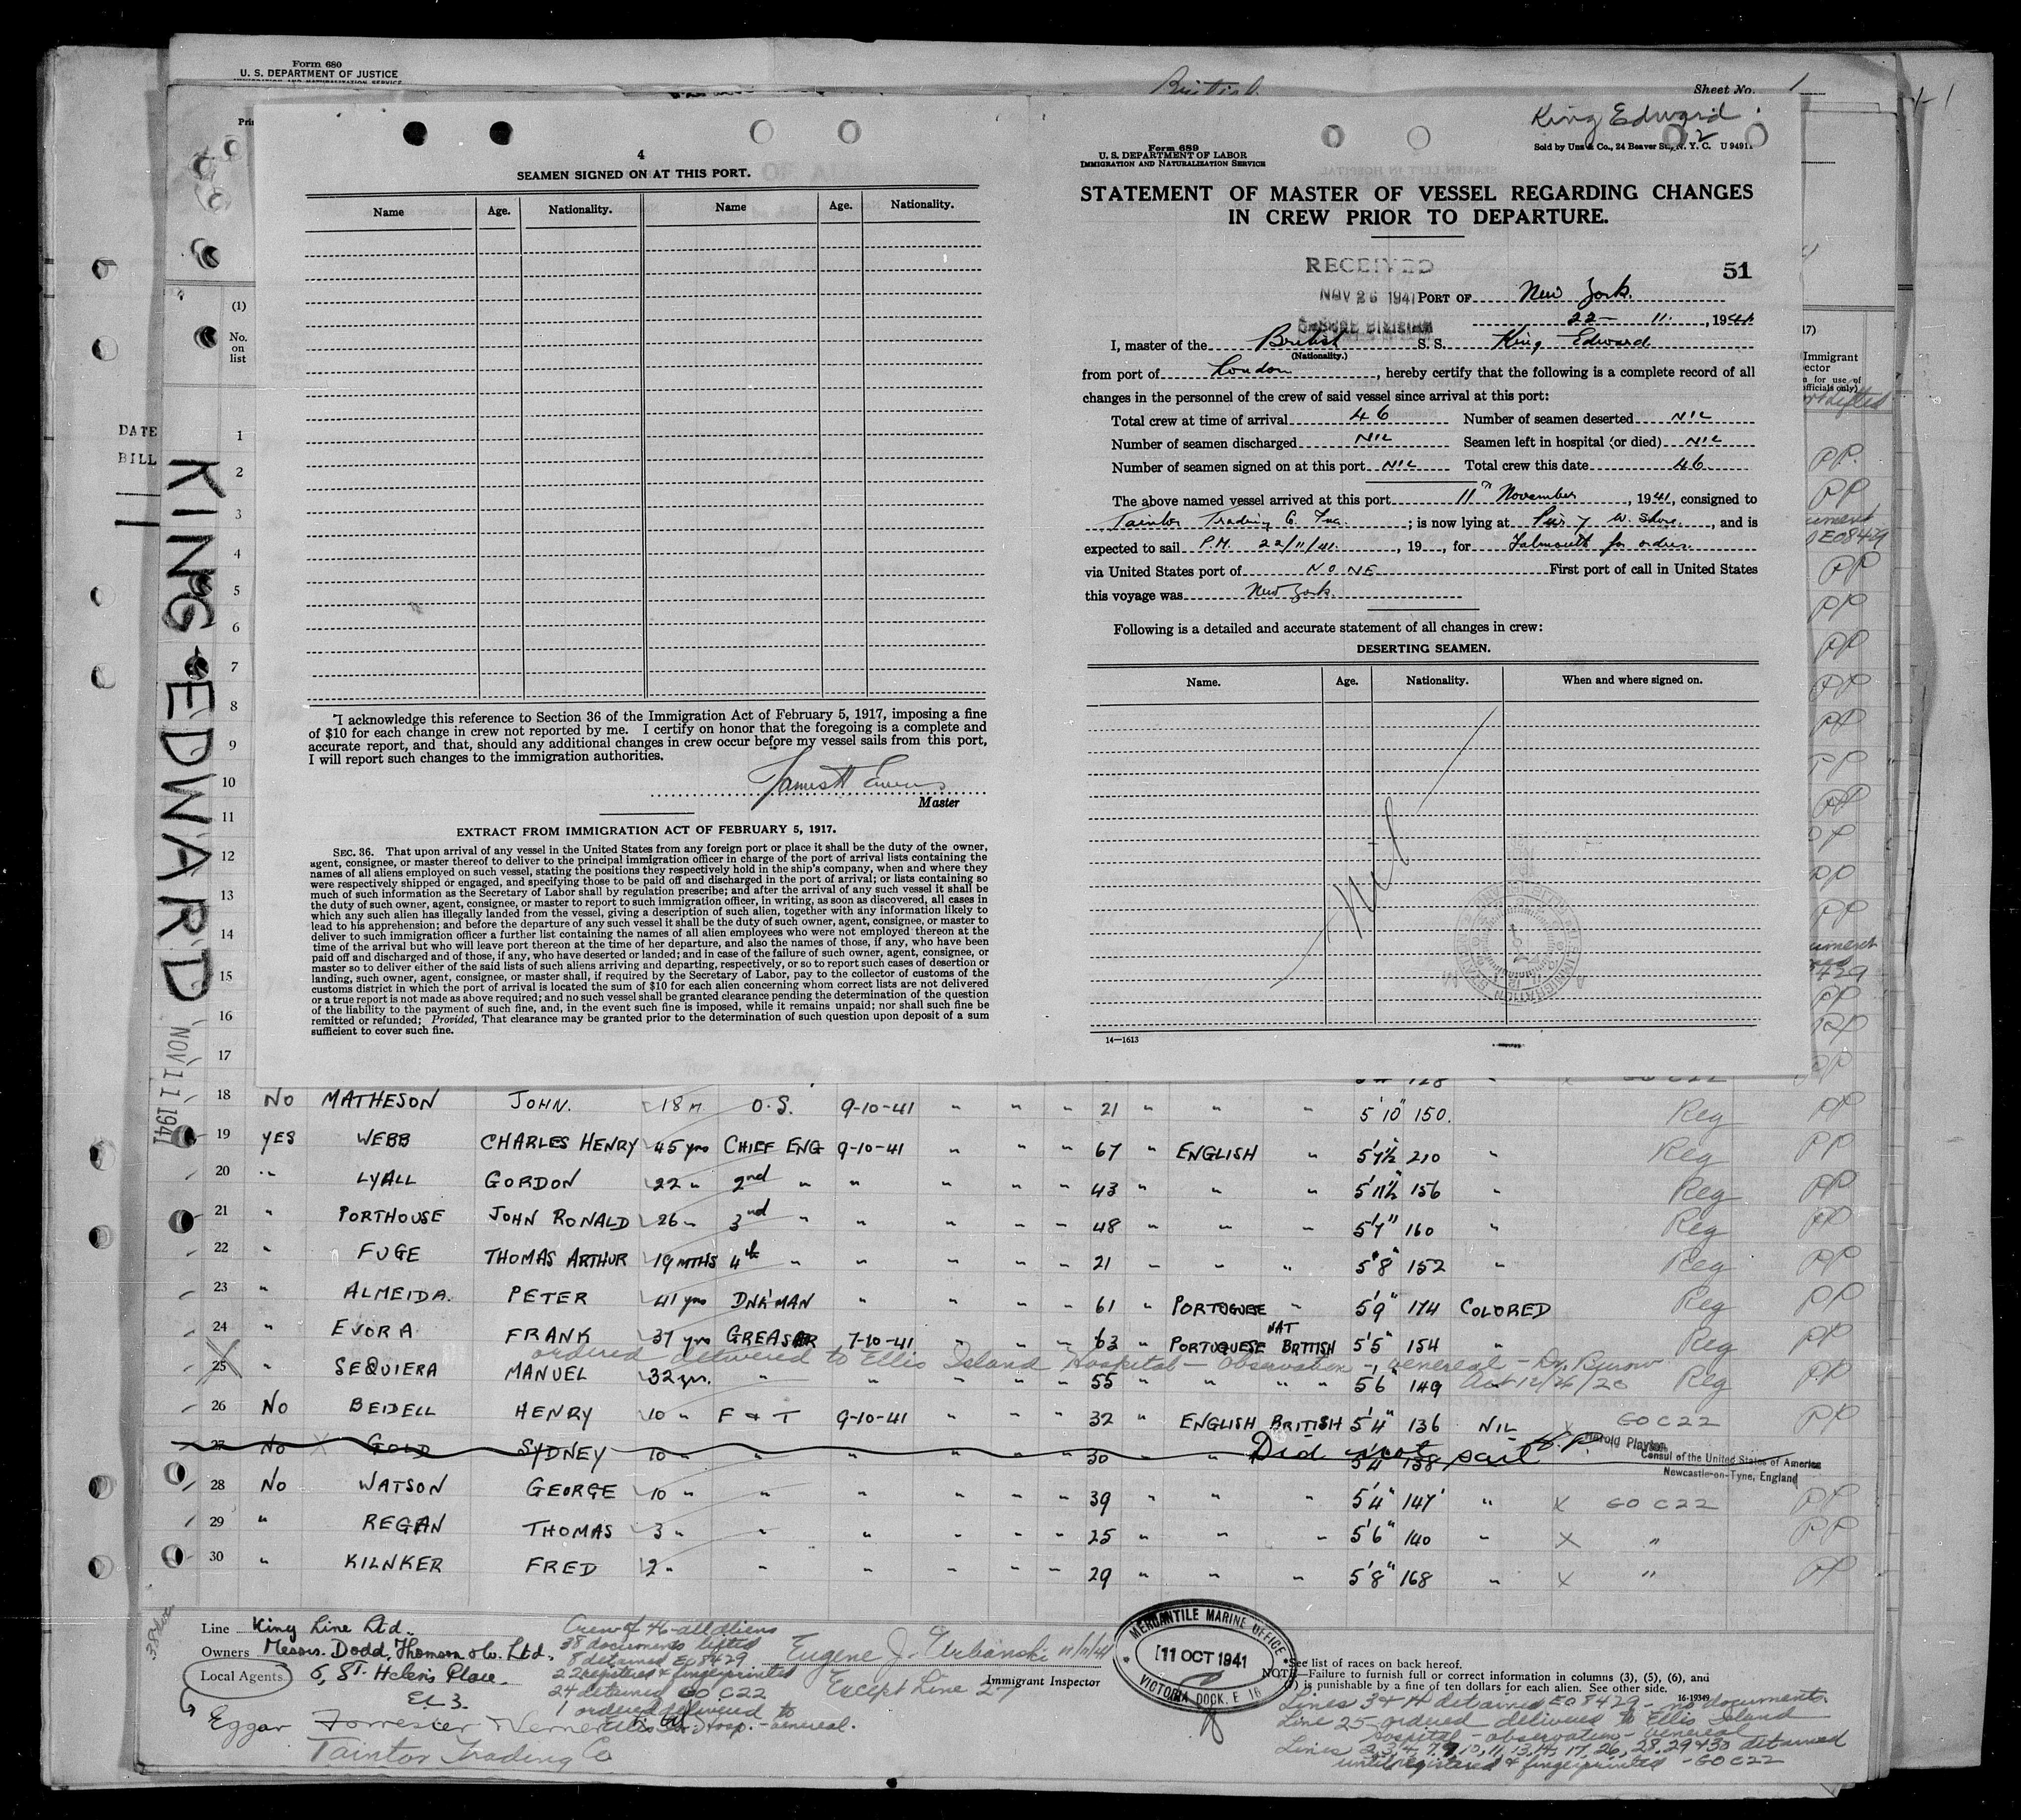 Form 680
U. S. DEPARTMENT OF JUSTICE
British
Sheet No. 1
King Edward
2
Sold by Unz & Co., 24 Beaver St., N. Y. C. U 94911
4
SEAMEN SIGNED ON AT THIS PORT.
Name Age. Nationality. Name Age. Nationality.
"I acknowledge this reference to Section 36 of the Immigration Act of February 5, 1917, imposing a fine
of $10 for each change in crew not reported by me. I certify on honor that the foregoing is a complete and
accurate report, and that, should any additional changes in crew occur before my vessel sails from this port,
I will report such changes to the immigration authorities.
Master
EXTRACT FROM IMMIGRATION ACT OF FEBRUARY 5, 1917.
SEC. 36. That upon arrival of any vessel in the United States from any foreign port or place it shall be the duty of the owner,
agent, consignee, or master thereof to deliver to the principal immigration officer in charge of the port of arrival lists containing the
names of all aliens employed on such vessel, stating the positions they respectively hold in the ship's company, when and where they
were respectively shipped or engaged, and specifying those to be paid off and discharged in the port of arrival; or lists containing so
much of such information as the Secretary of Labor shall by regulation prescribe; and after the arrival of any such vessel it shall be
the duty of such owner, agent, consignee, or master to report to such immigration officer, in writing, as soon as discovered, all cases in
which any such alien has illegally landed from the vessel, giving a description of such alien, together with any information likely to
lead to his apprehension; and before the departure of any such vessel it shall be the duty of such owner, agent, consignee, or master to
deliver to such immigration officer a further list containing the names of all alien employees who were not employed thereon at the
time of the arrival but who will leave port thereon at the time of her departure, and also the names of those, if any, who have been
paid off and discharged and of those, if any, who have deserted or landed; and in case of the failure of such owner, agent, consignee, or
master so to deliver either of the said lists of such aliens arriving and departing, respectively, or so to report such cases of desertion or
landing, such owner, agent, consignee, or master shall, if required by the Secretary of Labor, pay to the collector of customs of the
customs district in which the port of arrival is located the sum of $10 for each alien concerning whom correct lists are not delivered
or a true report is not made as above required; and no such vessel shall be granted clearance pending the determination of the question
of the liability to the payment of such fine, and, in the event such fine is imposed, while it remains unpaid; nor shall such fine be
remitted or refunded; Provided, That clearance may be granted prior to the determination of such question upon deposit of a sum
sufficient to cover such fine.
Form 689
U. S. DEPARTMENT OF LABOR
IMMIGRATION AND NATURALIZATION SERVICE
STATEMENT OF MASTER OF VESSEL REGARDING CHANGES
IN CREW PRIOR TO DEPARTURE.
RECEIVED
NOV 26 1941
51
PORT OF New York.
22 - 11. , 1941
I, master of the British S. S. King Edward
(Nationality.)
from port of London , hereby certify that the following is a complete record of all
changes in the personnel of the crew of said vessel since arrival at this port:
Total crew at time of arrival 46 Number of seamen deserted NIL
Number of seamen discharged NIL Seamen left in hospital (or died) NIL
Number of seamen signed on at this port NIL Total crew this date 46.
The above named vessel arrived at this port 11th November , 1941, consigned to
Taintor Trading Co. Inc. ; is now lying at Pier 7 W. Shore. , and is
expected to sail P.M. 22/11/41. , 19 , for Falmouth for orders.
via United States port of NONE First port of call in United States
this voyage was New York.
Following is a detailed and accurate statement of all changes in crew:
DESERTING SEAMEN.
Name. Age. Nationality. When and where signed on.
Nil
14—1613
DATE
BILL
KING EDWARD
NOV 11 1941
(1)
No.
on
list
1
2
3
4
5
6
7
8
9
10
11
12
13
14
15
16
17
18 NO MATHESON JOHN. 18 M O.S. 9-10-41 " " " 21 " " " 5'10" 150. Reg PP
19 YES WEBB CHARLES HENRY 45 yrs CHIEF ENG 9-10-41 " " " 67 " ENGLISH " 5'7½ 210 " Reg PP
20 " LYALL GORDON 22 " 2nd " " " " " 43 " " " 5'11½" 156 " Reg PP
21 " PORTHOUSE JOHN RONALD 26 " 3nd " " " " " 48 " " " 5'7" 160 " Reg PP
22 " FUGE THOMAS ARTHUR 19 MTHS 4th " " " " " 21 " " " 5'8" 152 " Reg PP
23 " ALMEIDA. PETER 41 yrs DNK'MAN " " " " 61 " PORTUGUESE " 5'9" 174 COLORED Reg PP
24 " EVORA FRANK 37 yrs GREASER 7-10-41 " " " 63 " PORTUGUESE NAT BRITISH 5'5" 154 " Reg PP
ordered delivered to Ellis Island Hospital - observation - venereal - Dr. Burow
25 " SEQUIERA MANUEL 32 yrs. " " " " " 55 " " " " 5'6" 149 Act 12/26/20 Reg PP
26 NO BEIDELL HENRY 10 " F & T 9-10-41 " " " 32 " ENGLISH BRITISH 5'4" 136 NIL X GO C22 PP
27 No X GOLD SYDNEY 10 " " " " " " 30 " " Did not sail 5'4" 138 H.P.
Harold Playter
Consul of the United States of America
Newcastle-on-Tyne, England
28 NO WATSON GEORGE 10 " " " " " " 39 " " " 5'4" 147 " X GO C22 PP
29 " REGAN THOMAS 3 " " " " " " 25 " " " 5'6" 140 " X " PP
30 " KILNKER FRED 2 " " " " " " 29 " " " 5'8" 168 " X " PP
Line King Line Ltd.
Owners Messrs. Dodd, Thomson & Co. Ltd.
Local Agents 5, St. Helen's Place.
E.C. 3.
Eggar Forrester
Taintor Trading Co
Crew of 46 - all aliens
38 documents lifted
8 detained EO 8429
22 registered & fingerprinted
24 detained GO C22
1 ordered delivered to
Ellis Isl Hosp. - venereal.
Eugene J. Urbanski 11/11/41
Immigrant Inspector
Except Line 27
MERCANTILE MARINE OFFICE
11 OCT 1941
VICTORIA DOCK. E 16
See list of races on back hereof.
NOTE—Failure to furnish full or correct information in columns (3), (5), (6), and
(7) is punishable by a fine of ten dollars for each alien. See other side.
16-19349
Lines 3 & 14 detained EO 8429 - no documents.
Line 25 - ordered delivered to Ellis Island
Hospital - observation - venereal
Lines 2, 3, 4, 7, 9, 10, 11, 13, 14, 17, 26, 28, 29 & 30 detained
until registered & fingerprinted - GO C22